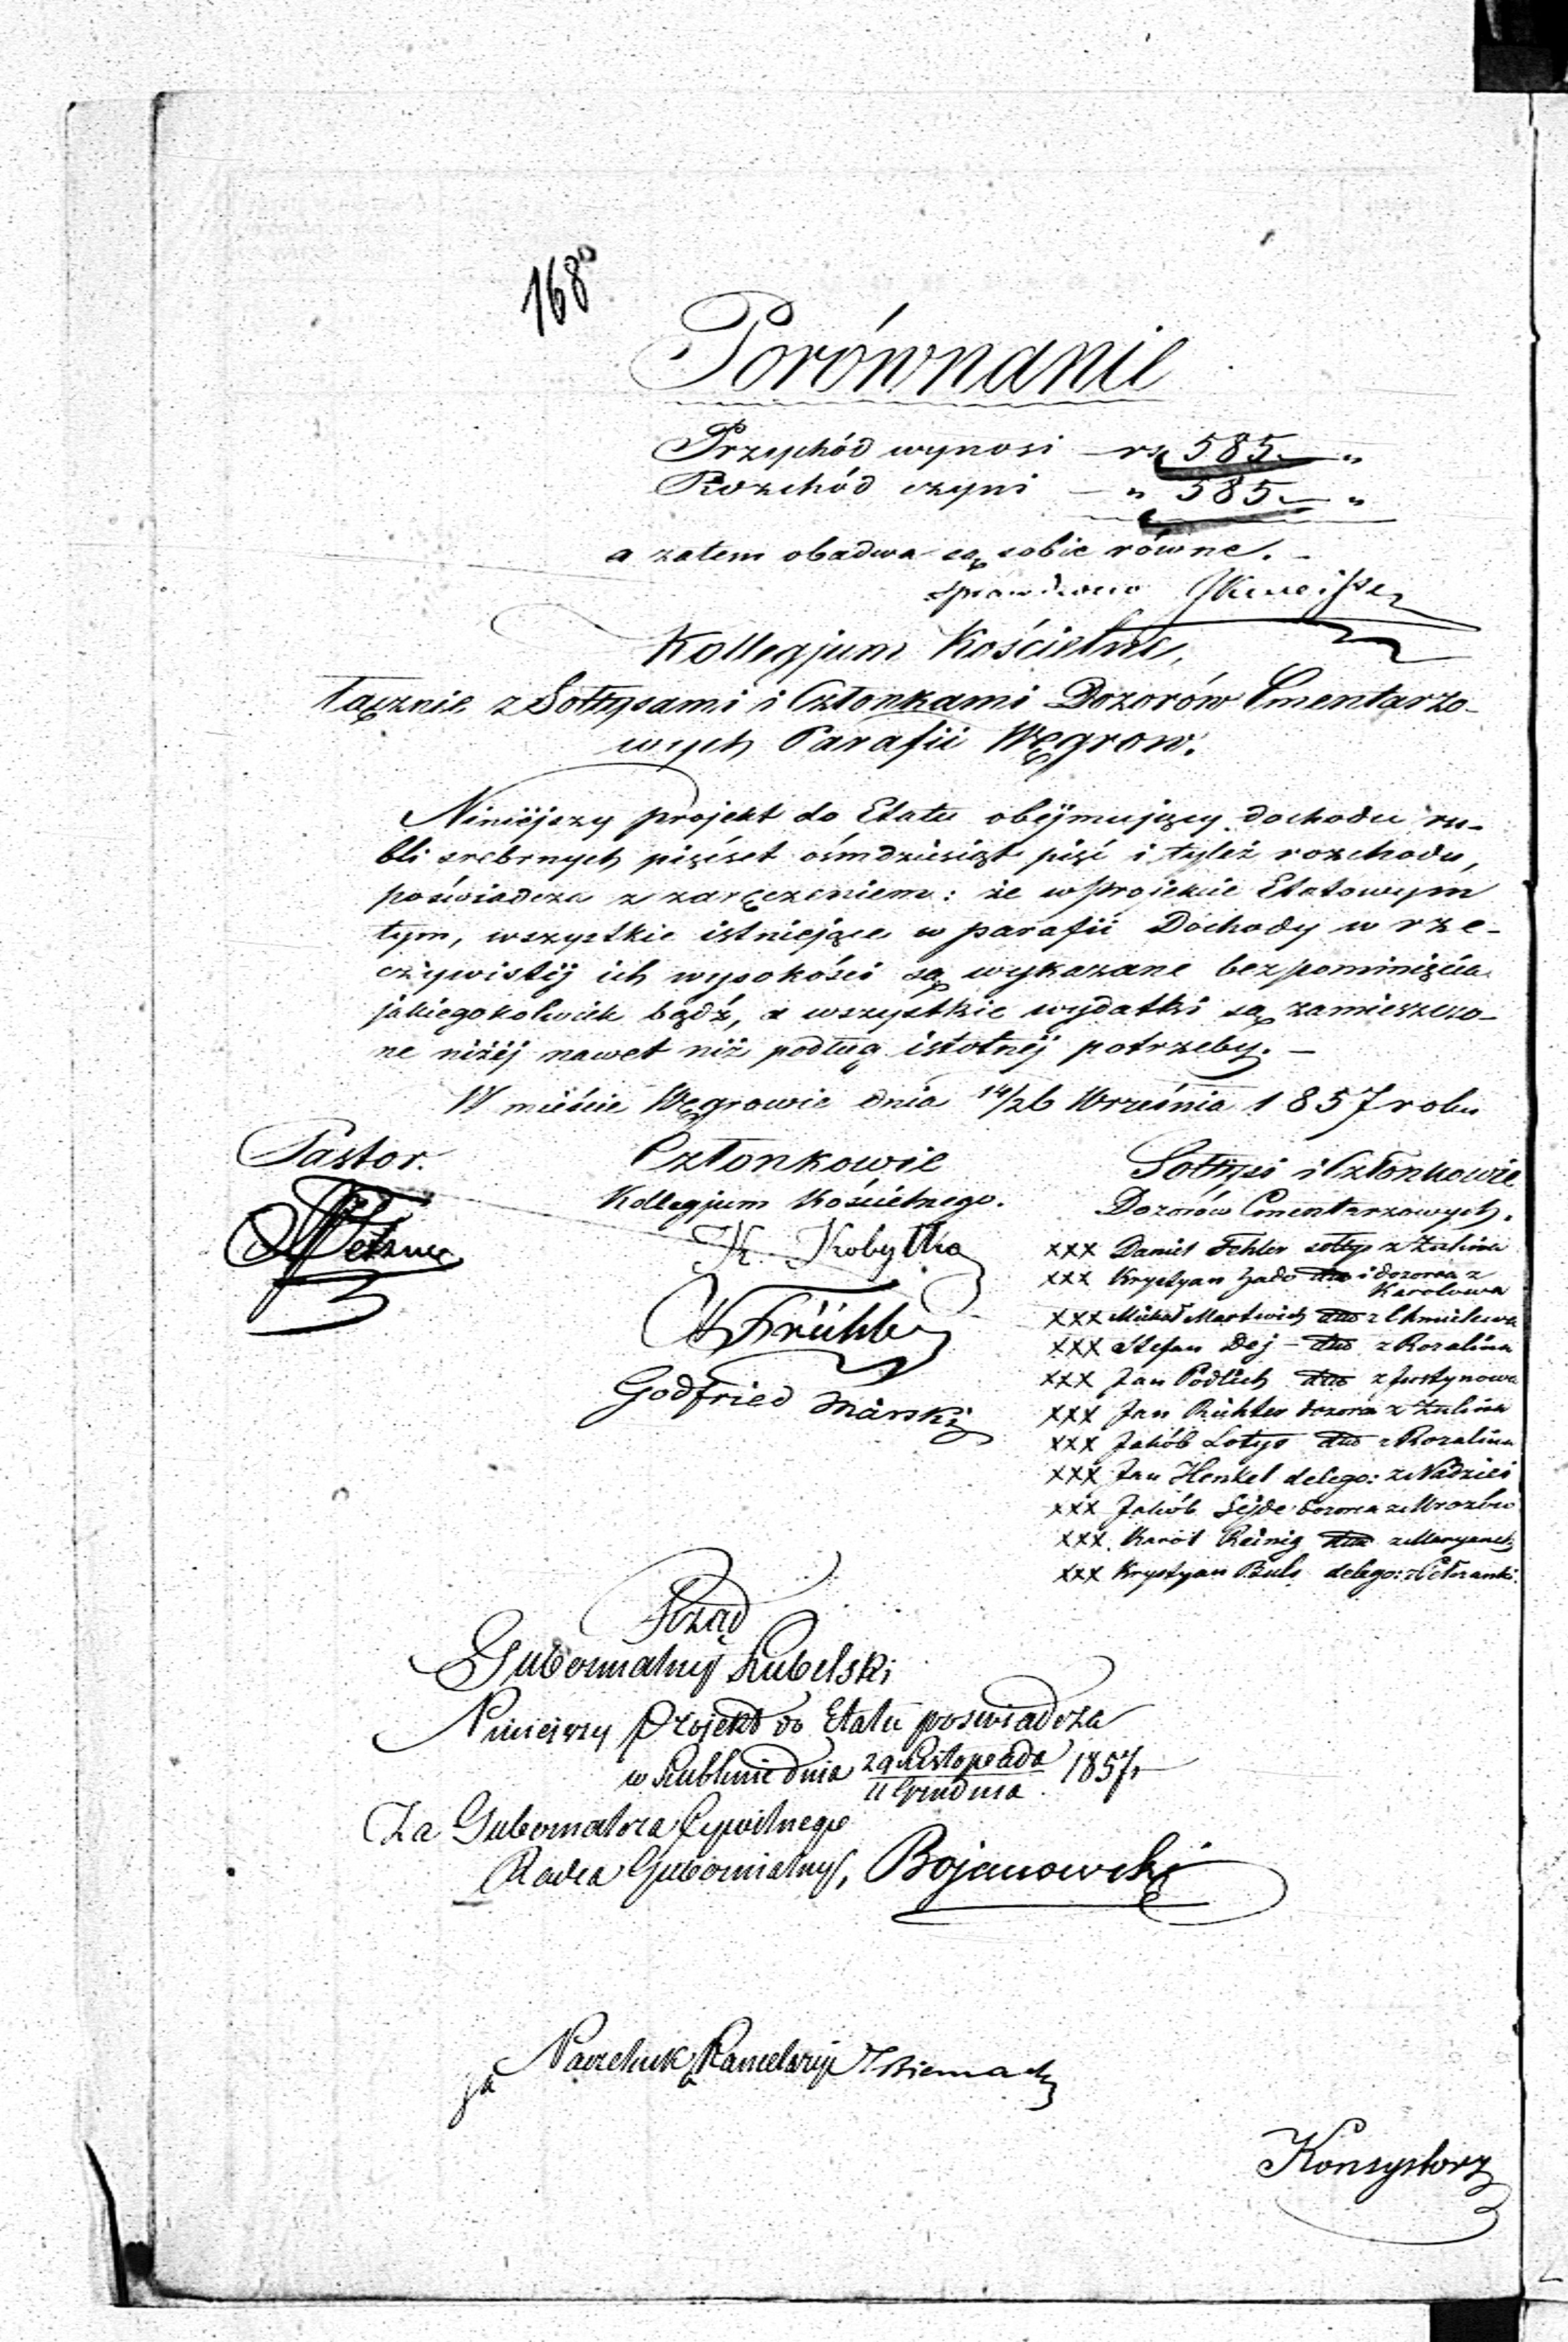 168
Porównanie
Przychód wynosi — rs 585 — "
Rozchód czyni — " 585 — "
a zatem obadwa są sobie równe. —
Sprawdzono
Kollegjum Kościelne,
łącznie z Sołtysami i Członkami Dozorów Cmentarzo-
wych Parafii Węgrow.
Niniéjszy projekt do Etatu obéjmujący dochodu ru-
bli srebrnych pięćset ośmdziesiąt pięć i tyleż rozchodu,
poświadcza z zaręczeniem: że w projekcie Etatowym
tym, wszystkie istniejące w parafii Dochody w rze-
czywistéj ich wysokości są wykazane bez pominięcia
jakiegokolwiek bądź, a wszystkie wydatki są zamieszczo-
ne niżéj nawet niż podług istotnéj potrzeby. —
W mieście Węgrowie dnia 14/26 Września 1857 roku
Pastor.
Członkowie
Kollegjum Kościelnego.
K. Kobyłka
Frühb
Godfried Marski
Sołtysi i Członkowie
Dozorów Cmentarzowych.
xxx Daniel Fehler sołtys z Żulina
xxx Krystyan Gado dto i dozorca z
Karolowa
xxx Michał Martwich dto z Chmielewa
xxx Stefan Dej — dto z Rozalina
xxx Jan Podlich dto z Justynowa
xxx Jan Richter dozorca z Żulina
xxx Jakób Lotys dto z Rozalina
xxx Jan Henkel delego: z Nadziei
xxx Jakób Lejde dozorca z Mrozów
xxx Karól Reinig dto z Maryanek
xxx Krystyan Buls delego: z
Rząd
Gubernialny Lubelski
Niniejszy projekt do Etatu poswiadcza
w Lublinie dnia 29 Listopada / 11 Grudnia 1857 r.
Za Gubernatora Cywilnego
Radca Gubernialny, Bojanowski
za Naczelnik Kancelaryi
Konsystorz